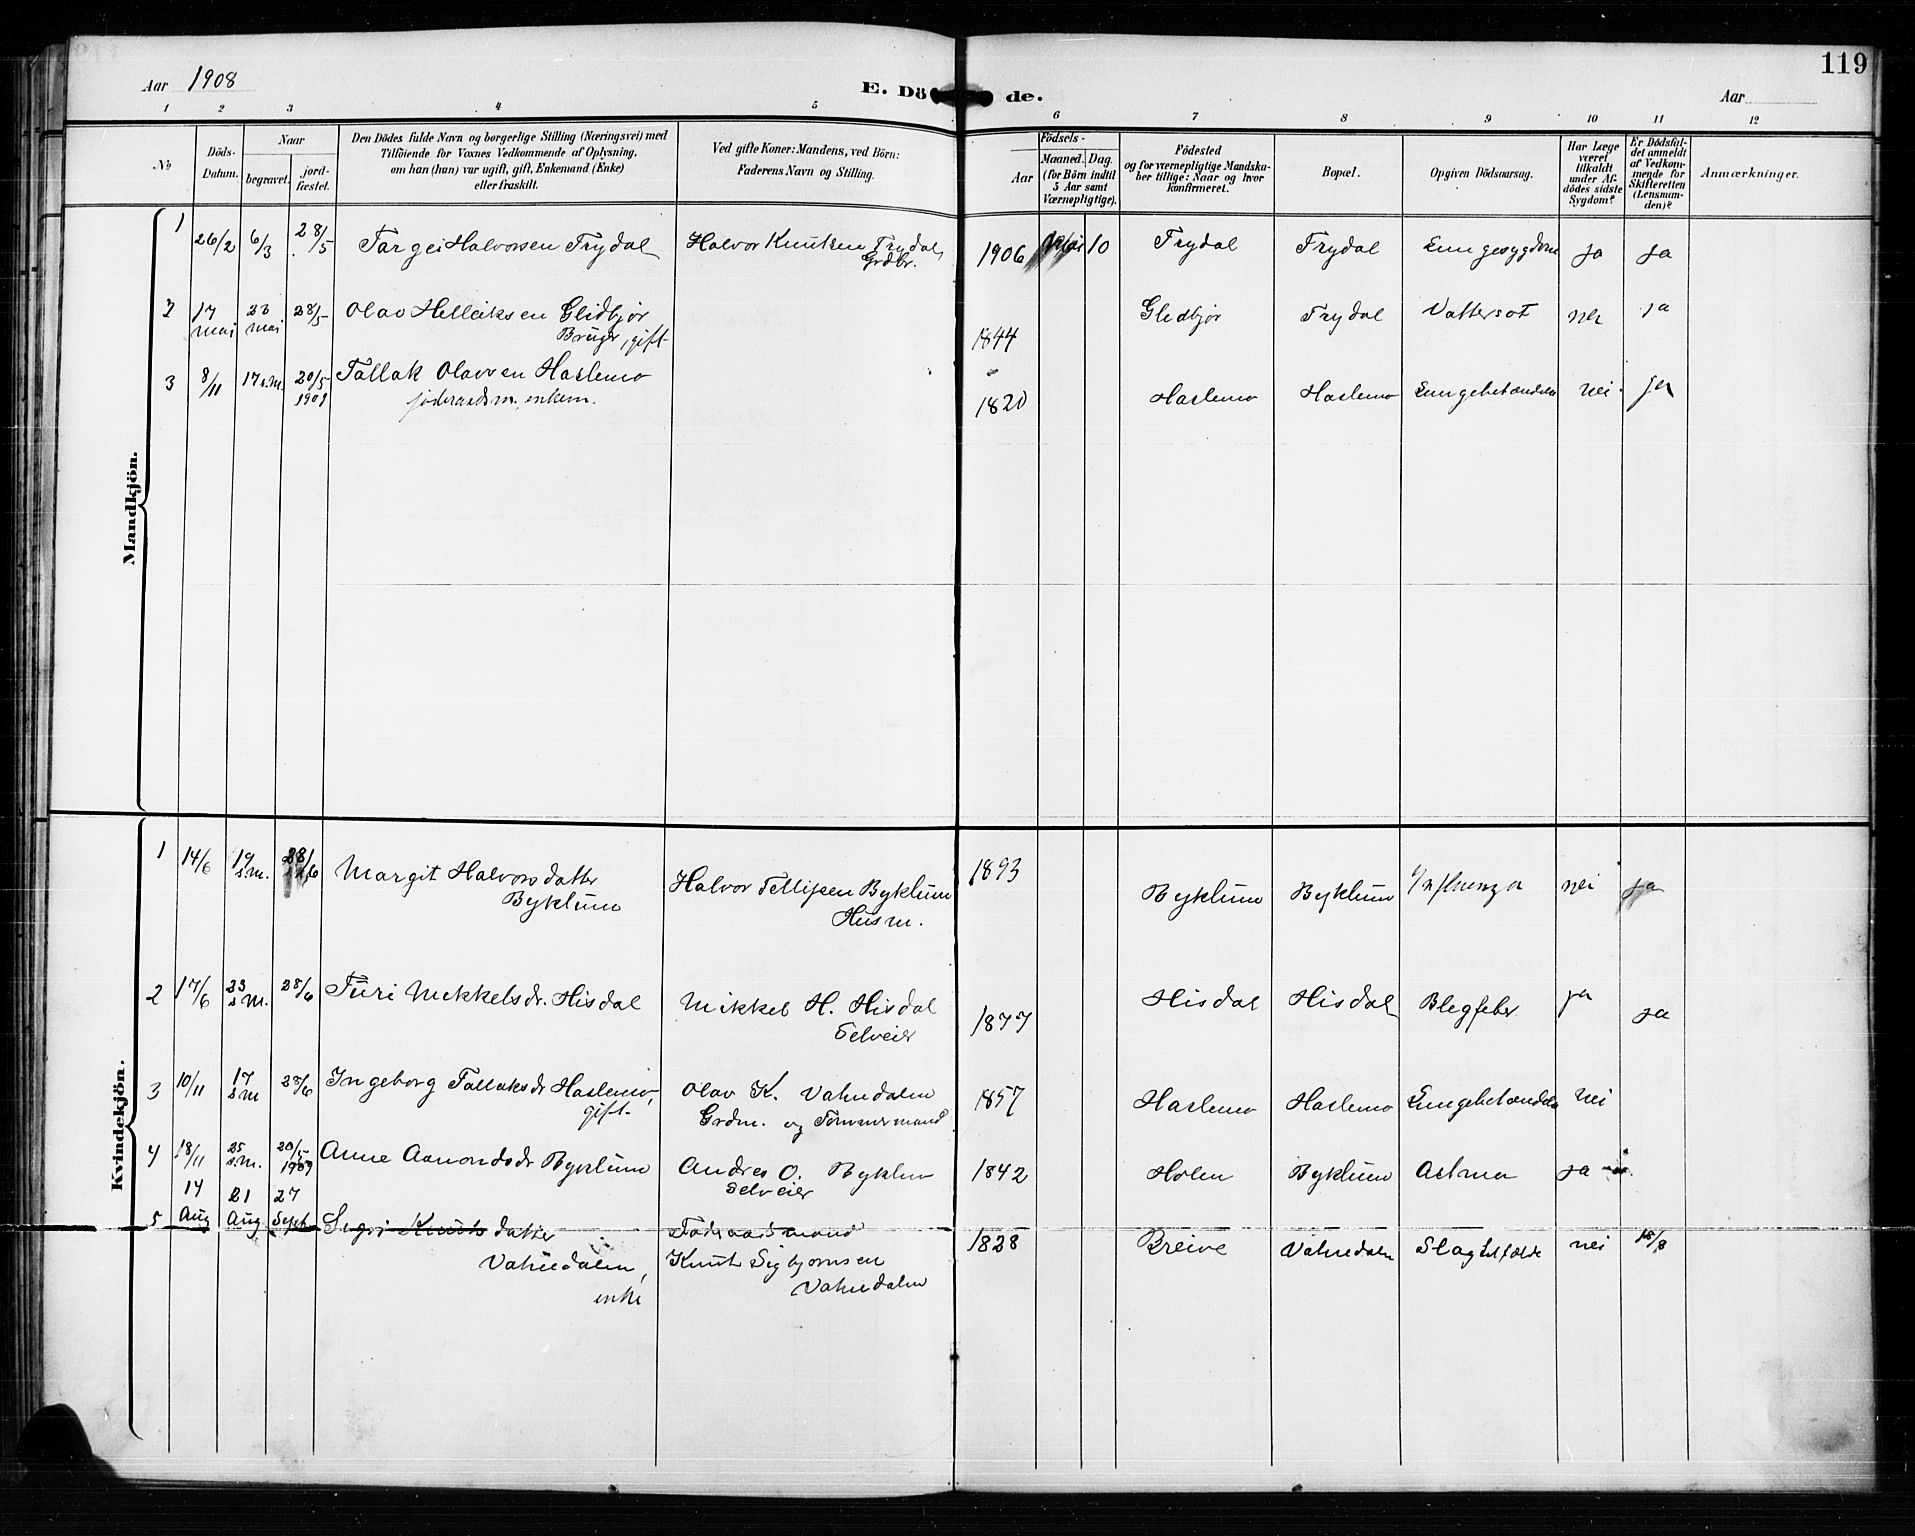 119
Aar 1908
E. Dö de.
Aar
1 2 3 4 5 6 7 8 9 10 11 12
No
Döds-Datum.
Naar
begravet. jord-fæstet.
Den Dödes fulde Navn og borgerlige Stilling (Næringsvei) med
Tilföiende for Voxnes Vedkommende af Oplysning,
om han (hun) var ugift, gift, Enkemand (Enke)
eller fraskilt.
Ved gifte Koner: Mandens, ved Börn:
Faderens Navn og Stilling.
Födsels-
Aar
Maaned. Dag.
(for Börn indtil
5 Aar samt
Værnepligtige).
Födested
og for værnepligtige Mandska-
ber tillige: Naar og hvor
konfirmeret.
Bopæl.
Opgiven Dödsaarsag.
Har Læge
været
tilkaldt
under Af-
dödes sidste
Sygdom?
Er Dödsfal-
det anmeldt
af Vedkom-
mende for
Skifteretten
(Lensman-
den)?
Anmærkninger.
Mandkjön.
1 26/2 6/3 28/5 Targei Halvorsen Trydal Halvor Knutsen Trydal Grdbr. 1906 10 Trydal Trydal Lungesygdom ja ja
2 17 mai 23 mai 28/5 Olav Helleiksen Glidbjør Bruger, gift 1844 Glidbjør Trydal Vattersot nei ja
3 8/11 17 s.m. 20/5 1909 Tallak Olavsen Haslemo föderaadsm, enkem. 1820 Haslemo Haslemo Lungebetændelse nei ja
Kvindekjön.
1 14/6 19 s.m. 28/6 Margit Halvorsdatter Byklum Halvor Tellefsen Byklum Husm. 1893 Byklum Byklum Influenza nei ja
2 17/6 23 s.m. 28/6 Turi Mikkelsdr. Hisdal Mikkel H. Hisdal Selveier 1877 Hisdal Hisdal Blegfeber ja ja
3 10/11 17 s.m 28/6 Ingeborg Tallaksdr Haslemo, gift Olav K. Vatnedalen Grdm. og Tömmermand 1857 Haslemo Haslemo Lungebetændelse nei
4 18/11 25 s.m. 20/5 1909 Anne Aanondsdr Byklum Andres O. Byklum Selveier 1842 Holen Byklum Astma ja
5 14 Aug 21 Aug 27 Sept Sigri Knutsdatter Vatnedalen, enke Föderaadsmand Knut Sigbjornsen Vatnedalen 1828 Breive Vatnedalen Slagtilfælde nei 15/8